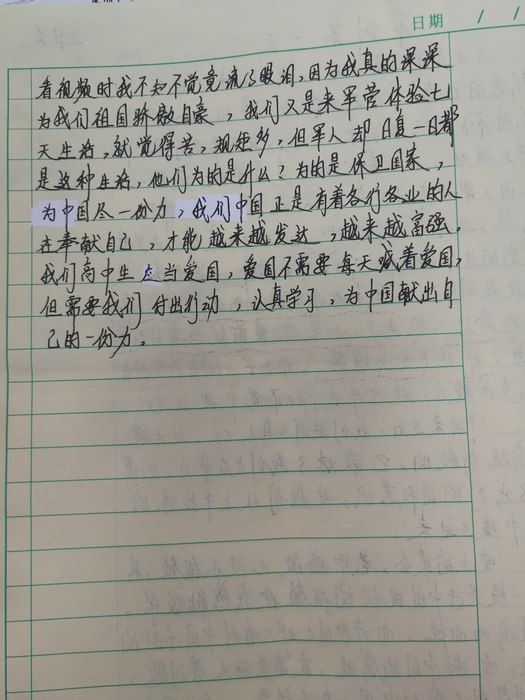 日期 / /
看视频时我不知不觉竟流了眼泪,因为我真的深深
为我们祖国骄傲自豪,我们又是来军营体验七
天生活,就觉得苦,规矩多,但军人却日复一日都
是这种生活,他们为的是什么?为的是保卫国家,
为中国尽一份力,我们中国正是有着各行各业的人
在奉献自己,才能越来越发达,越来越富强。
我们高中生应当爱国,爱国不需要每天喊着爱国,
但需要我们付出行动,认真学习,为中国献出自
己的一份力。